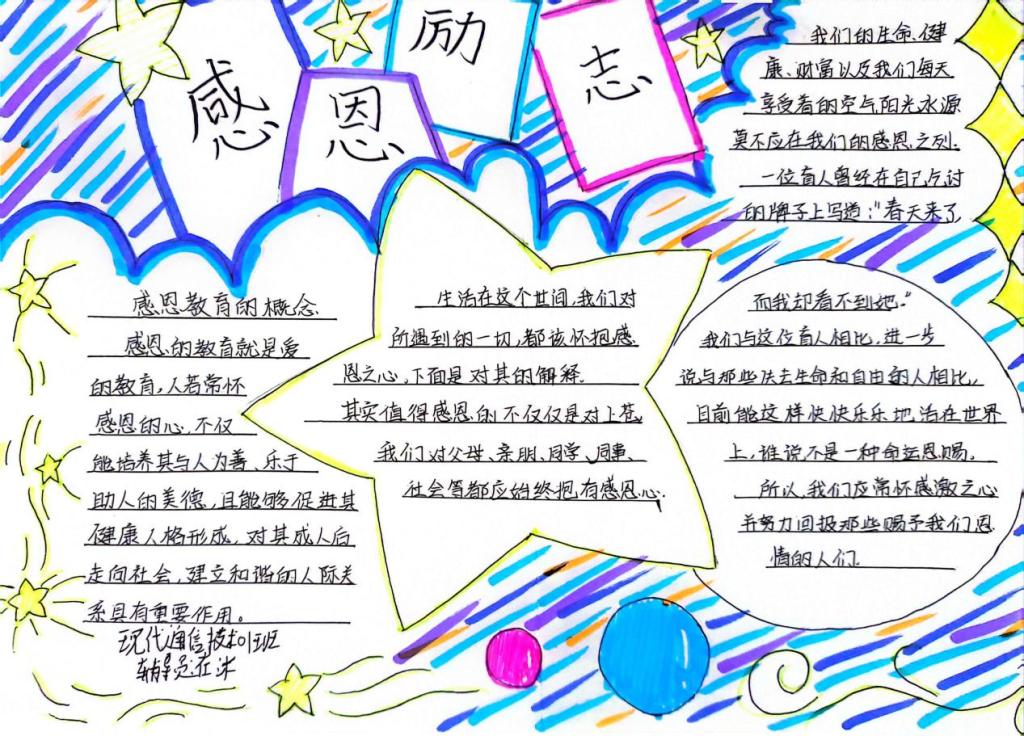 感恩励志
感恩教育的概念.
感恩的教育就是爱
的教育,人若常怀
感恩的心,不仅
能培养其与人为善、乐于
助人的美德,且能够促进其
健康人格形成,对其成人后
走向社会,建立和谐的人际关
系具有重要作用。
现代通信技术01班
辅导员:
生活在这个世间,我们对
所遇到的一切,都该怀抱感.
恩之心,下面是对其的解释.
其实值得感恩的不仅仅是对上苍,
我们对父母、亲朋、同学、同事、
社会等都应始终抱有感恩心.
我们的生命、健
康、财富以及我们每天
享受着的空气阳光水源
莫不应在我们的感恩之列.
一位盲人曾经在自己乞讨
的牌子上写道:"春天来了
而我却看不到她."
我们与这位盲人相比,进一步
说与那些失去生命和自由的人相比,
目前能这样快快乐乐地活在世界
上,谁说不是一种命运恩赐.
所以,我们应常怀感激之心
并努力回报那些赐予我们恩
情的人们.